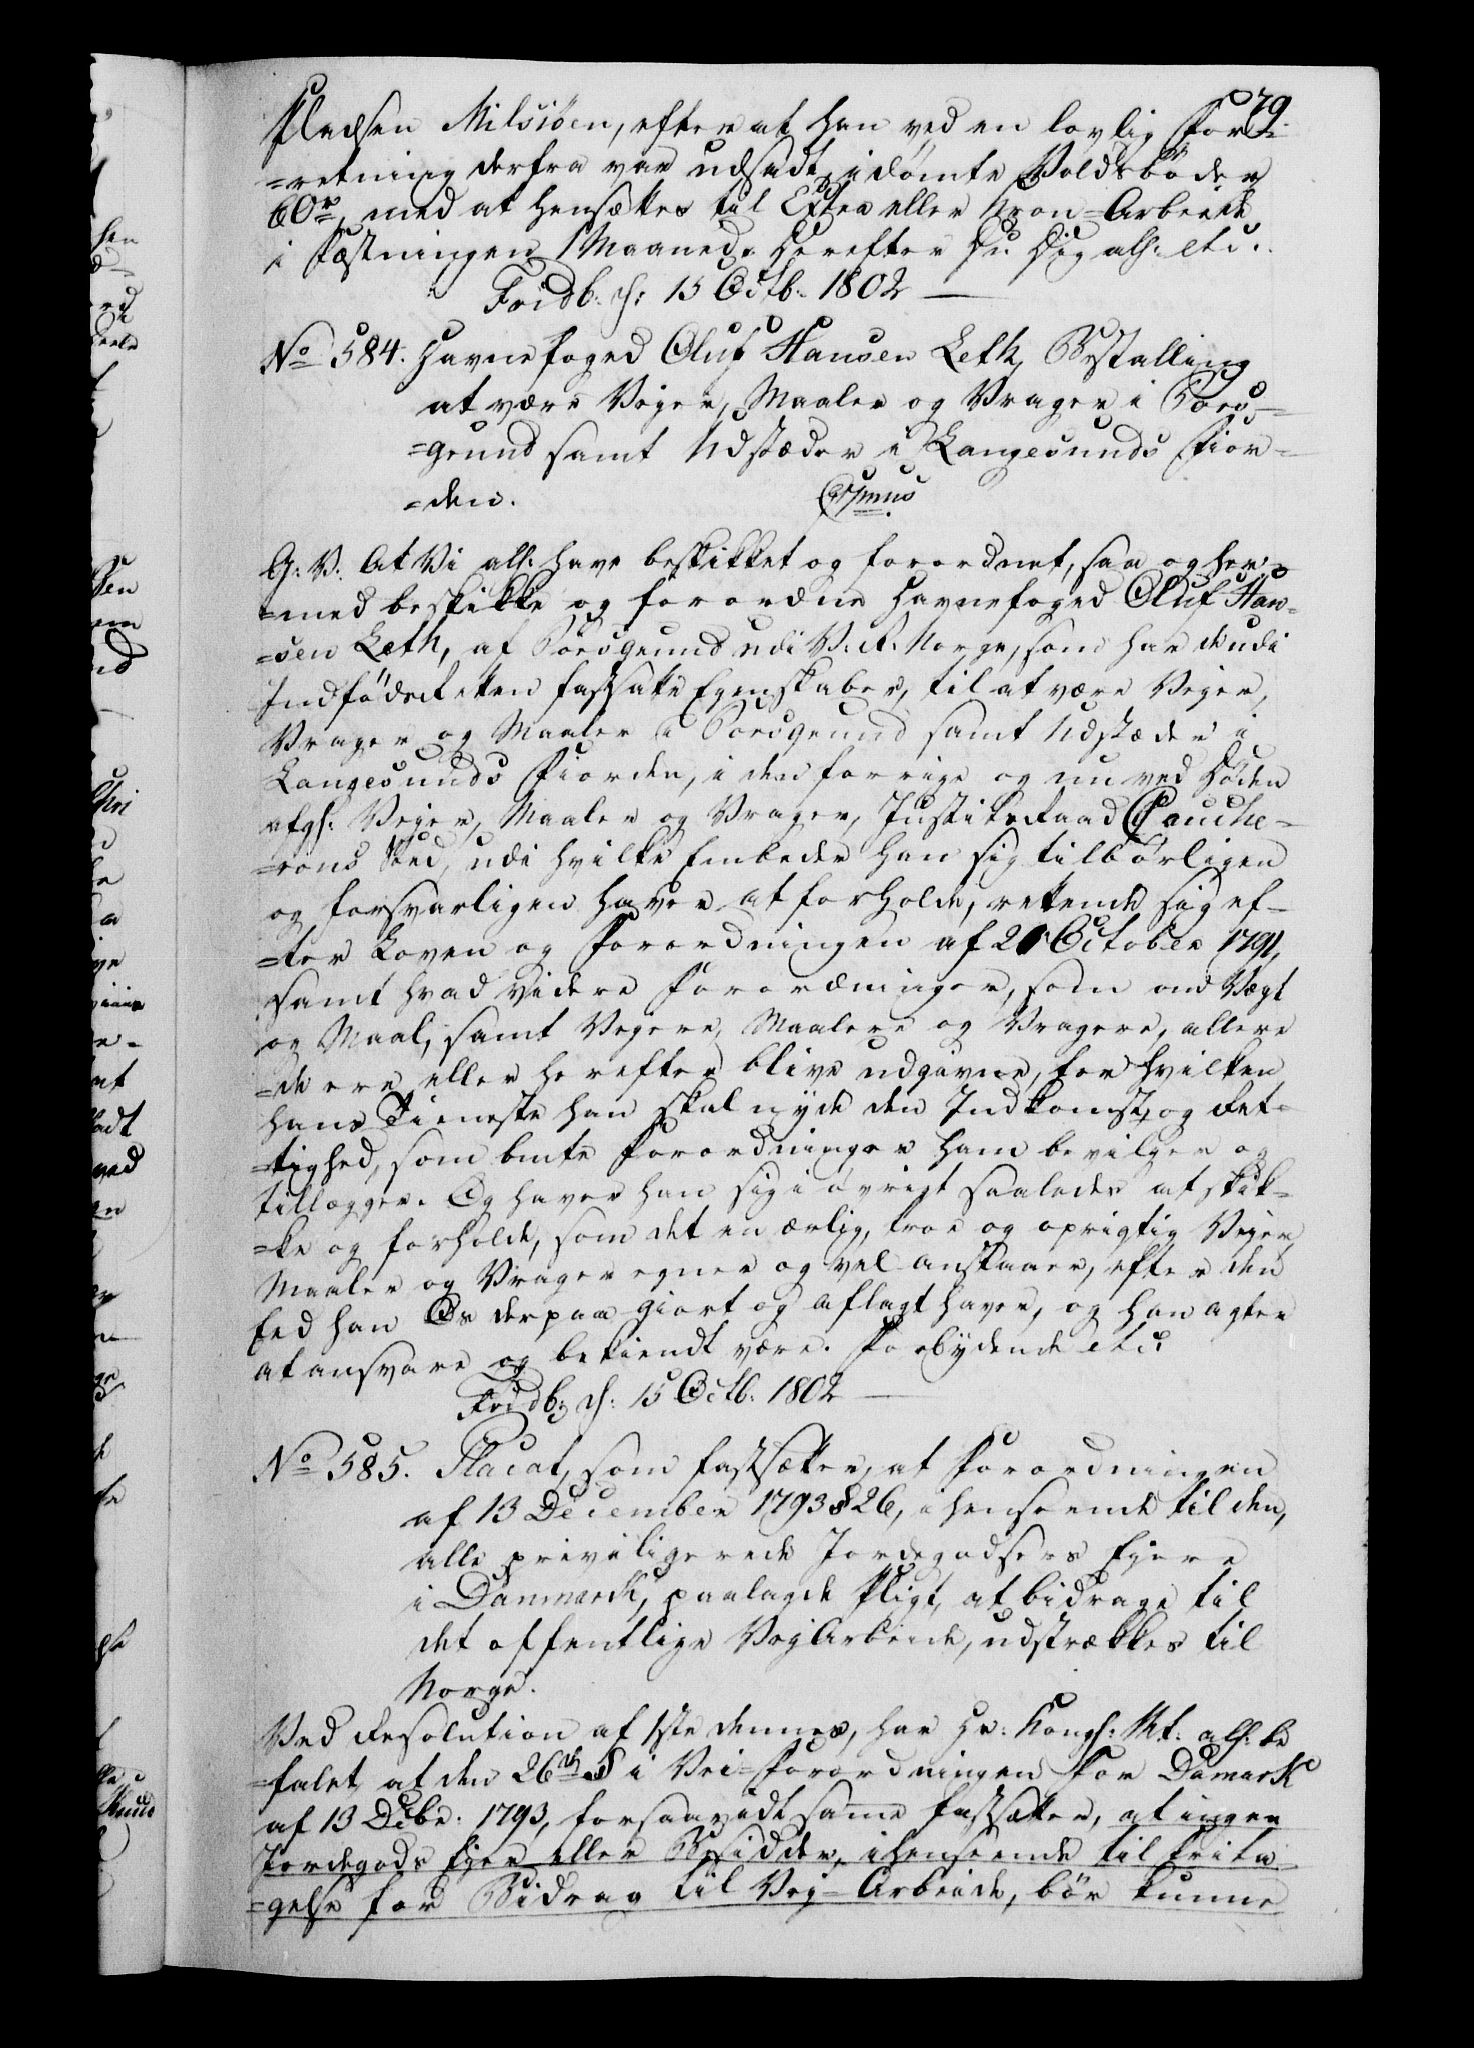 79.
Pladsen Milsiöen, efter at han ved en lovlig For-
=retning derfra var udsadt, idömte Voldsböder
60 rd, med at hensættes til Extra eller Kron=Arbeide
i Fæstningen 1 Maaned. Herefter Du Dig alh: etc:
Fridb: S: 15 Octb: 1802 —
No 584. Havnefoged Oluf Hansen Leth, Bestalling
at være Veiger, Maaler og Vrager i Pors-
=grund samt Udstæder i Langesunds Fior-
=den.
G: V: At Vi alh: have beskikket og forordnet, saa og her-
=med beskikke og forordne Havnefoged Oluf Han-
=sen Leth, af Porsgrund udi V: R: Norge, som har de udi
IndfödsRetten fastsatte Egenskaber, til at være Veier,
Vrager og Maaler i Porsgrund samt Udstæder i
Langesunds Fiorden, i den forrige og nu ved Döden
afgh: Veier, Maaler og Vrager, JustitsRaad Couche-
=rons Sted, udi hvilke Embeder han sig tilbörligen
og forsvarligen haver at forholde, rettende sig ef-
=ter Loven og Forordningen af 21 October 1791,
samt hvad videre Forordninger, som om Vægt
og Maal, samt Vejere, Maalere og Vragere, allere
=de ere eller herefter blive udgivne, for hvilken
hans Tieneste han skal nyde den Indkomst og Ret-
=tighed, som bmte Forordninger ham bevilger og
tillægger. Og haver han sig i övrigt saaledes at skik-
=ke og forholde, som det en ærlig, troe og oprigtig Vejer,
Maaler og Vrager egner og vel anstaaer, efter den
Eed han Os derpaa giort og aflagt haver, og han agter
at ansvare og bekiendt være. Forbydende etc:
Fridb: S: 15 Octb: 1802 —
No 585. Placat, som fastsætter, at Forordningen
af 13 December 1793 § 26, i henseende til den,
alle privilegerede Jordegodsers Ejere
i Danmark, paalagde Pligt, at bidrage til
det offentlige VejArbeide, udstrækkes til
Norge.
Ved Resolution af 1ste dennes, har Hs: Kongh: Mt: alh: be
=falet, at den 26de § i Vei=Forordningen for Damark
af 13 Decbr: 1793, forsaavidt samme fastsætter, at ingen
Jordegods Ejer eller Besidder, i henseende til Frita
=gelse for Bidrag til Vej=Arbeide, bör kunne